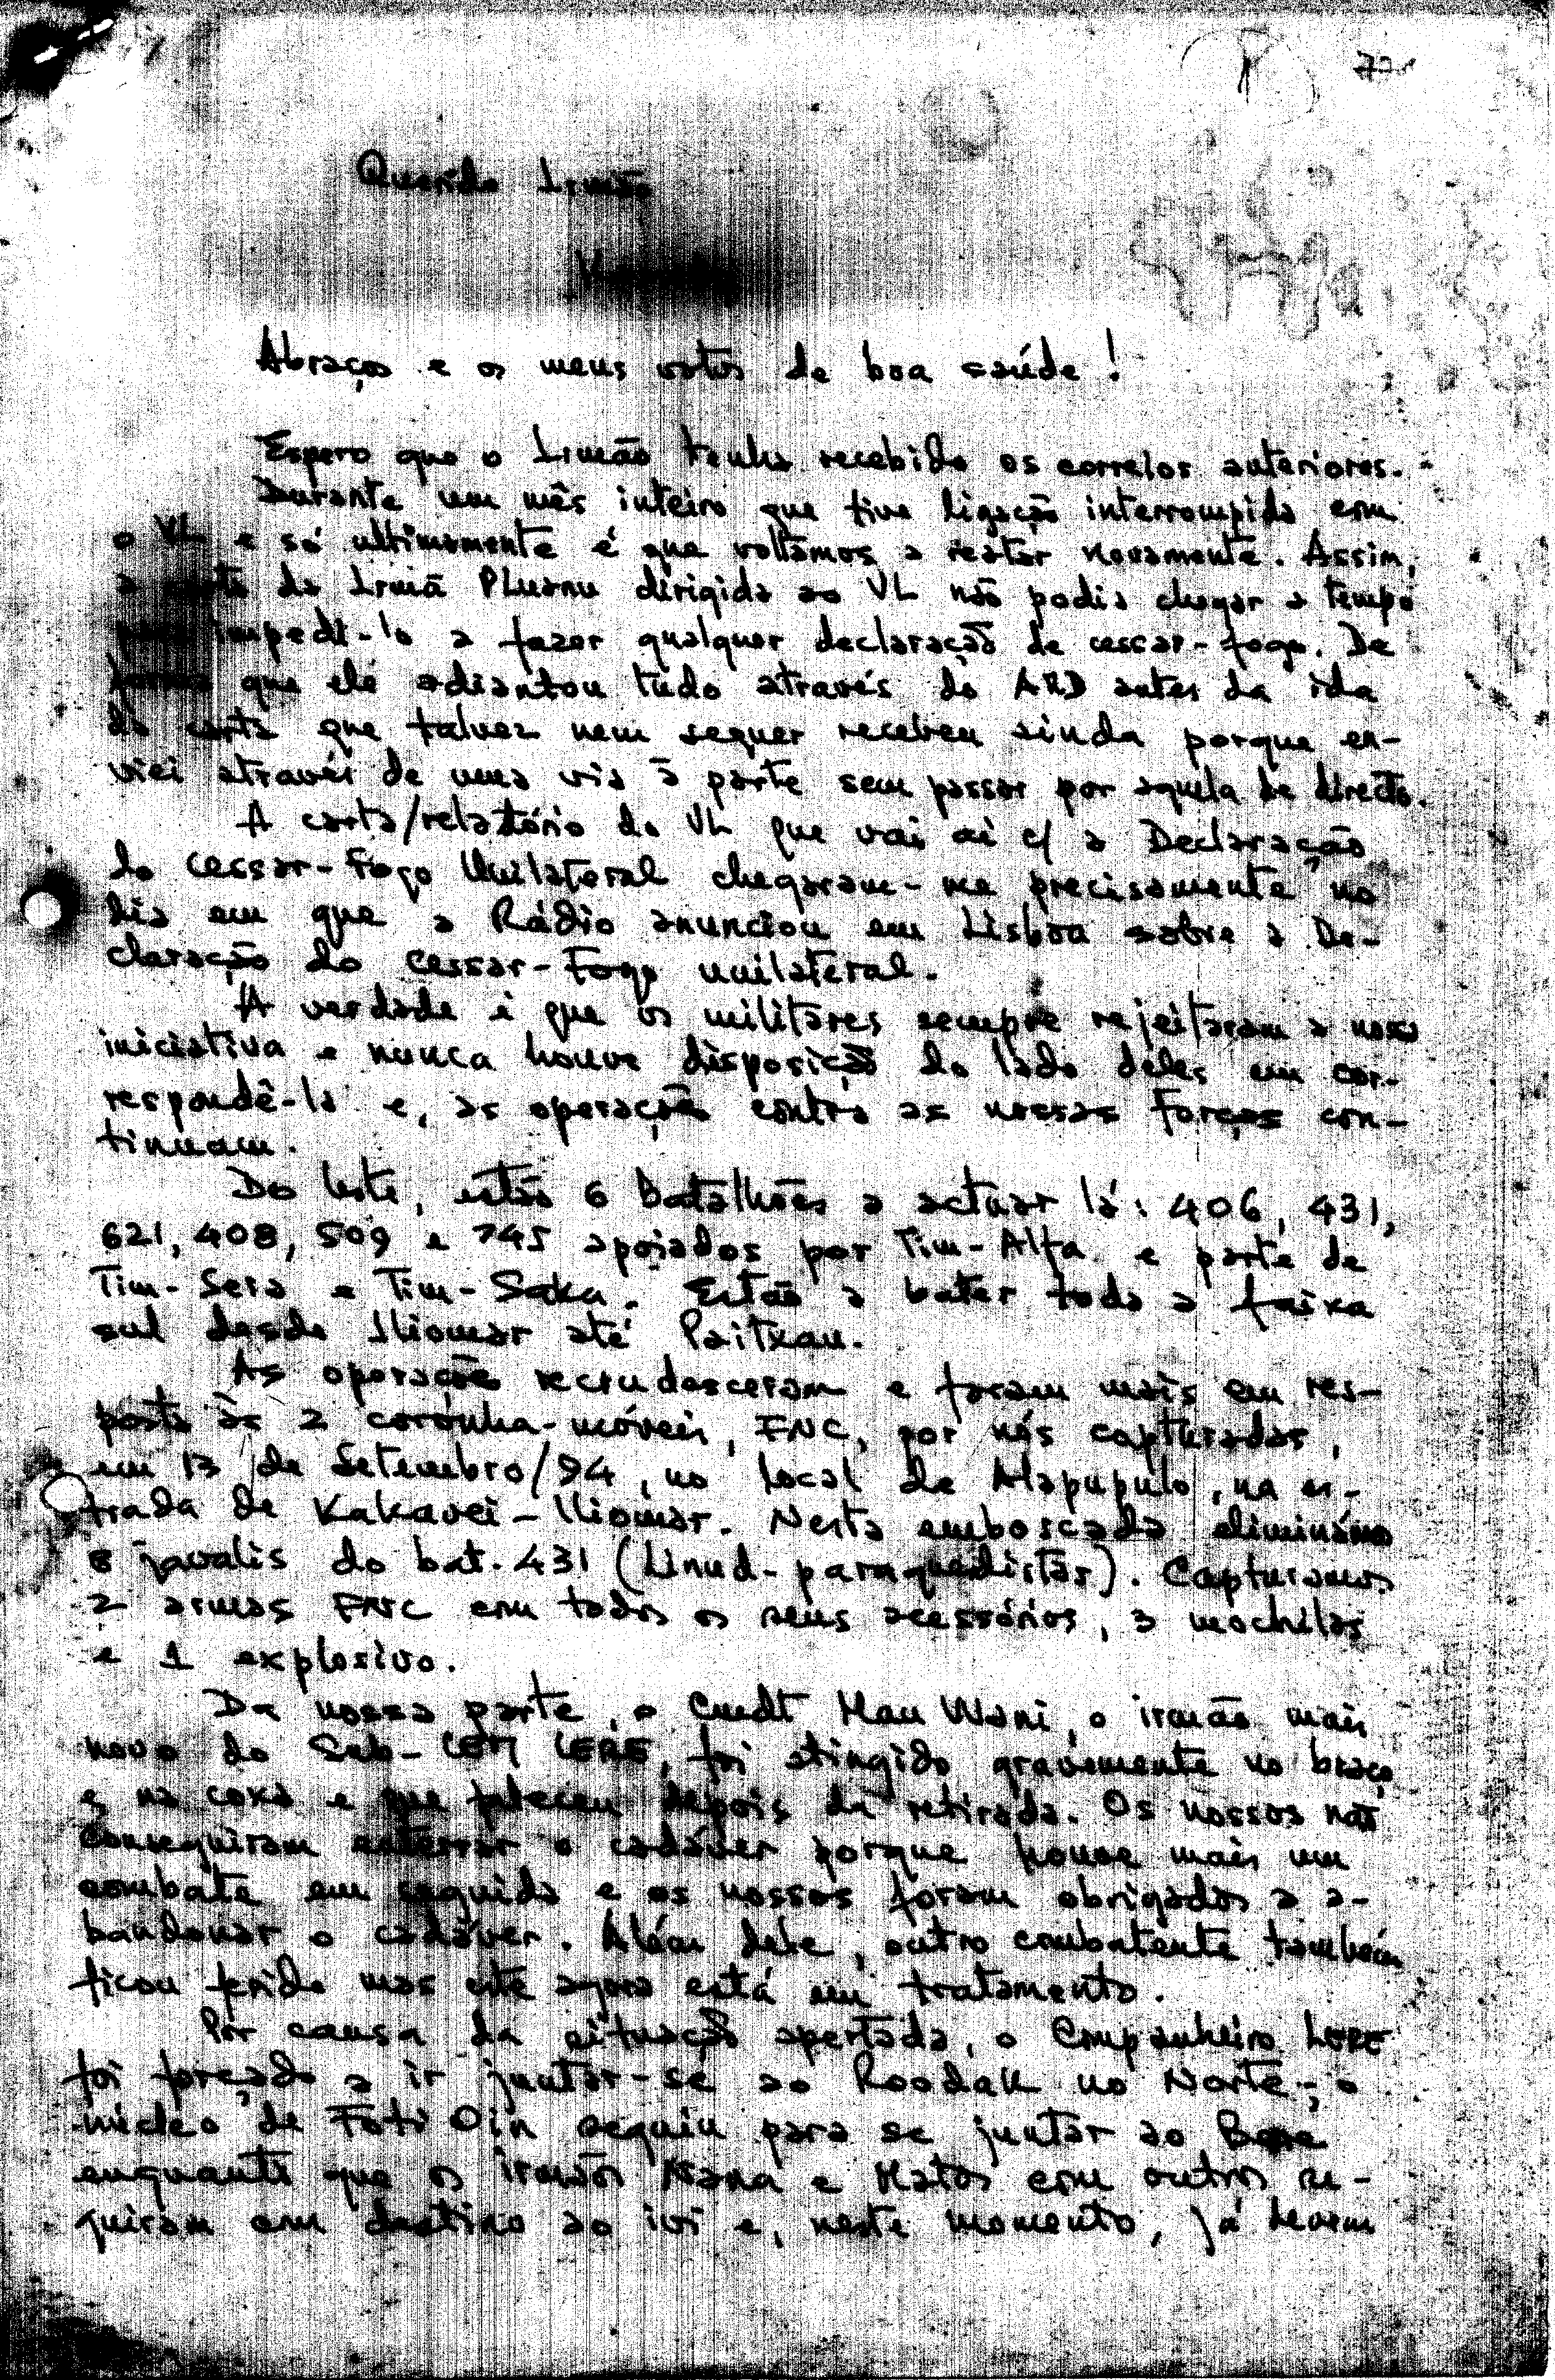 72
Querido Irmão
Abraços e os meus votos de boa saúde!
Espero que o Irmão tenha recebido os correios anteriores.
Durante um mês inteiro que tive ligação interrompida com
o VL e só ultimamente é que voltámos a reatar novamente. Assim,
a carta da Irmã PLuanu dirigida ao VL não podia chegar a tempo
para impedi-lo a fazer qualquer declaração de cessar-fogo. De
forma que ele adiantou tudo através do ARD antes da ida
da carta que talvez nem sequer recebeu ainda porque en-
viei através de uma via à parte sem passar por aquela de directo.
A carta/relatório do VL que vai aí c/ a Declaração
do Cessar-Fogo Unilateral chegaram-me precisamente no
dia em que a Rádio anunciou em Lisboa sobre a De-
claração do Cessar-Fogo unilateral.
A verdade é que os militares sempre rejeitaram a nossa
iniciativa e nunca houve disposição do lado deles em cor-
respondê-la e, as operações contra as nossas Forças con-
tinuam.
Do leste, estão 6 Batalhões a actuar lá: 406, 431,
621, 408, 509 e 745 apoiados por Tim-Alfa e parte de
Tim-Sera e Tim-Saka. Estão a bater toda a faixa
sul desde Iliomar até Paitxau.
As operações recrudesceram e foram mais em res-
posta às 2 coronha-móveis, FNC, por nós capturadas,
em 13 de Setembro/94, no local de Alapupulo, na es-
trada de Kakavei-Iliomar. Nesta emboscada eliminámos
8 javalis do bat. 431 (Linud-paraquedistas). Capturamos
2 armas FNC com todos os seus acessórios, 3 mochilas
e 1 explosivo.
Da nossa parte, o Cmdt Mau Wani, o irmão mais
novo do Sub-CEM LERE, foi atingido gravemente no braço
e na coxa e que faleceu depois da retirada. Os nossos não
conseguiram enterrar o cadáver porque houve mais um
combate em seguida e os nossos foram obrigados a a-
bandonar o cadáver. Além dele, outro combatente também
ficou ferido mas este agora está em tratamento.
Por causa da situação apertada, o Companheiro LERE
foi forçado a ir juntar-se ao Roodak no Norte; o
núcleo de Foti Oin seguiu para se juntar ao
enquanto que os irmãos Nana e Matos com outros se-
guiram com destino ao ivi e, neste momento, já devem